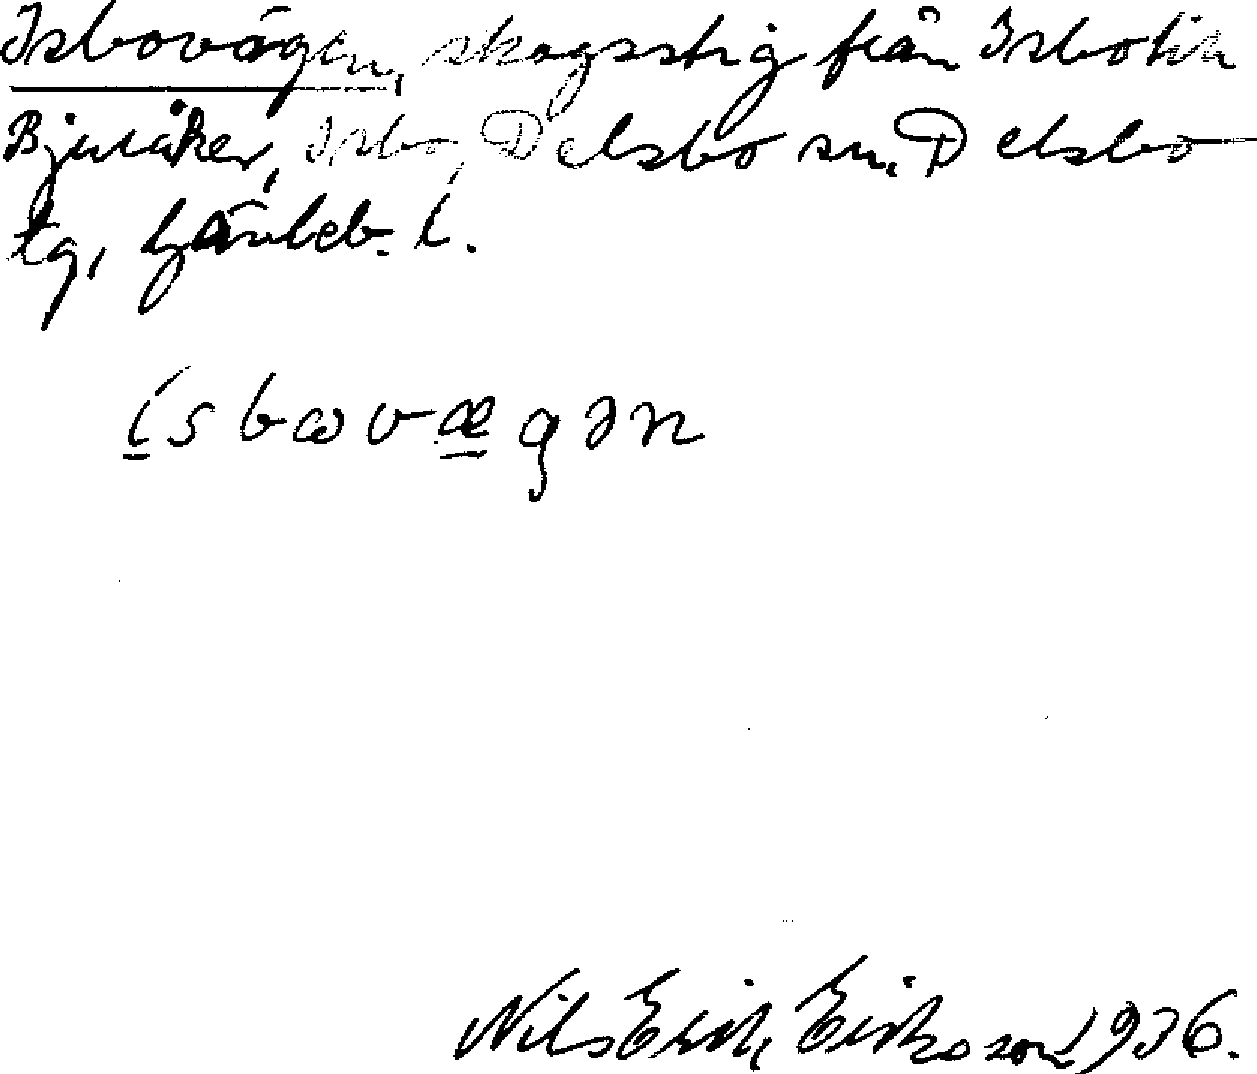 Isbovägen, skogsstig från Isbo till
Bjuråker, Isbo, Delsbo sn. Delsbo
tg, Gävleb. l.
isbωvægən
Nils Erik Eriksson 1936.